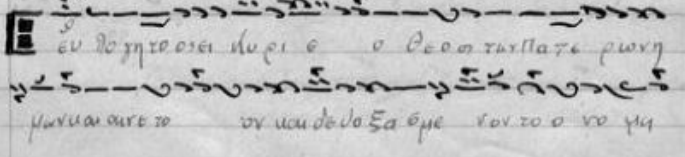 Ε ευ λο γη το ο σ ει Κυ ρι ε ο Θε ο σ των Πα τε ρων η
μων και αι νε το ον και δε δο ξα α σμε νον το ο νο μα